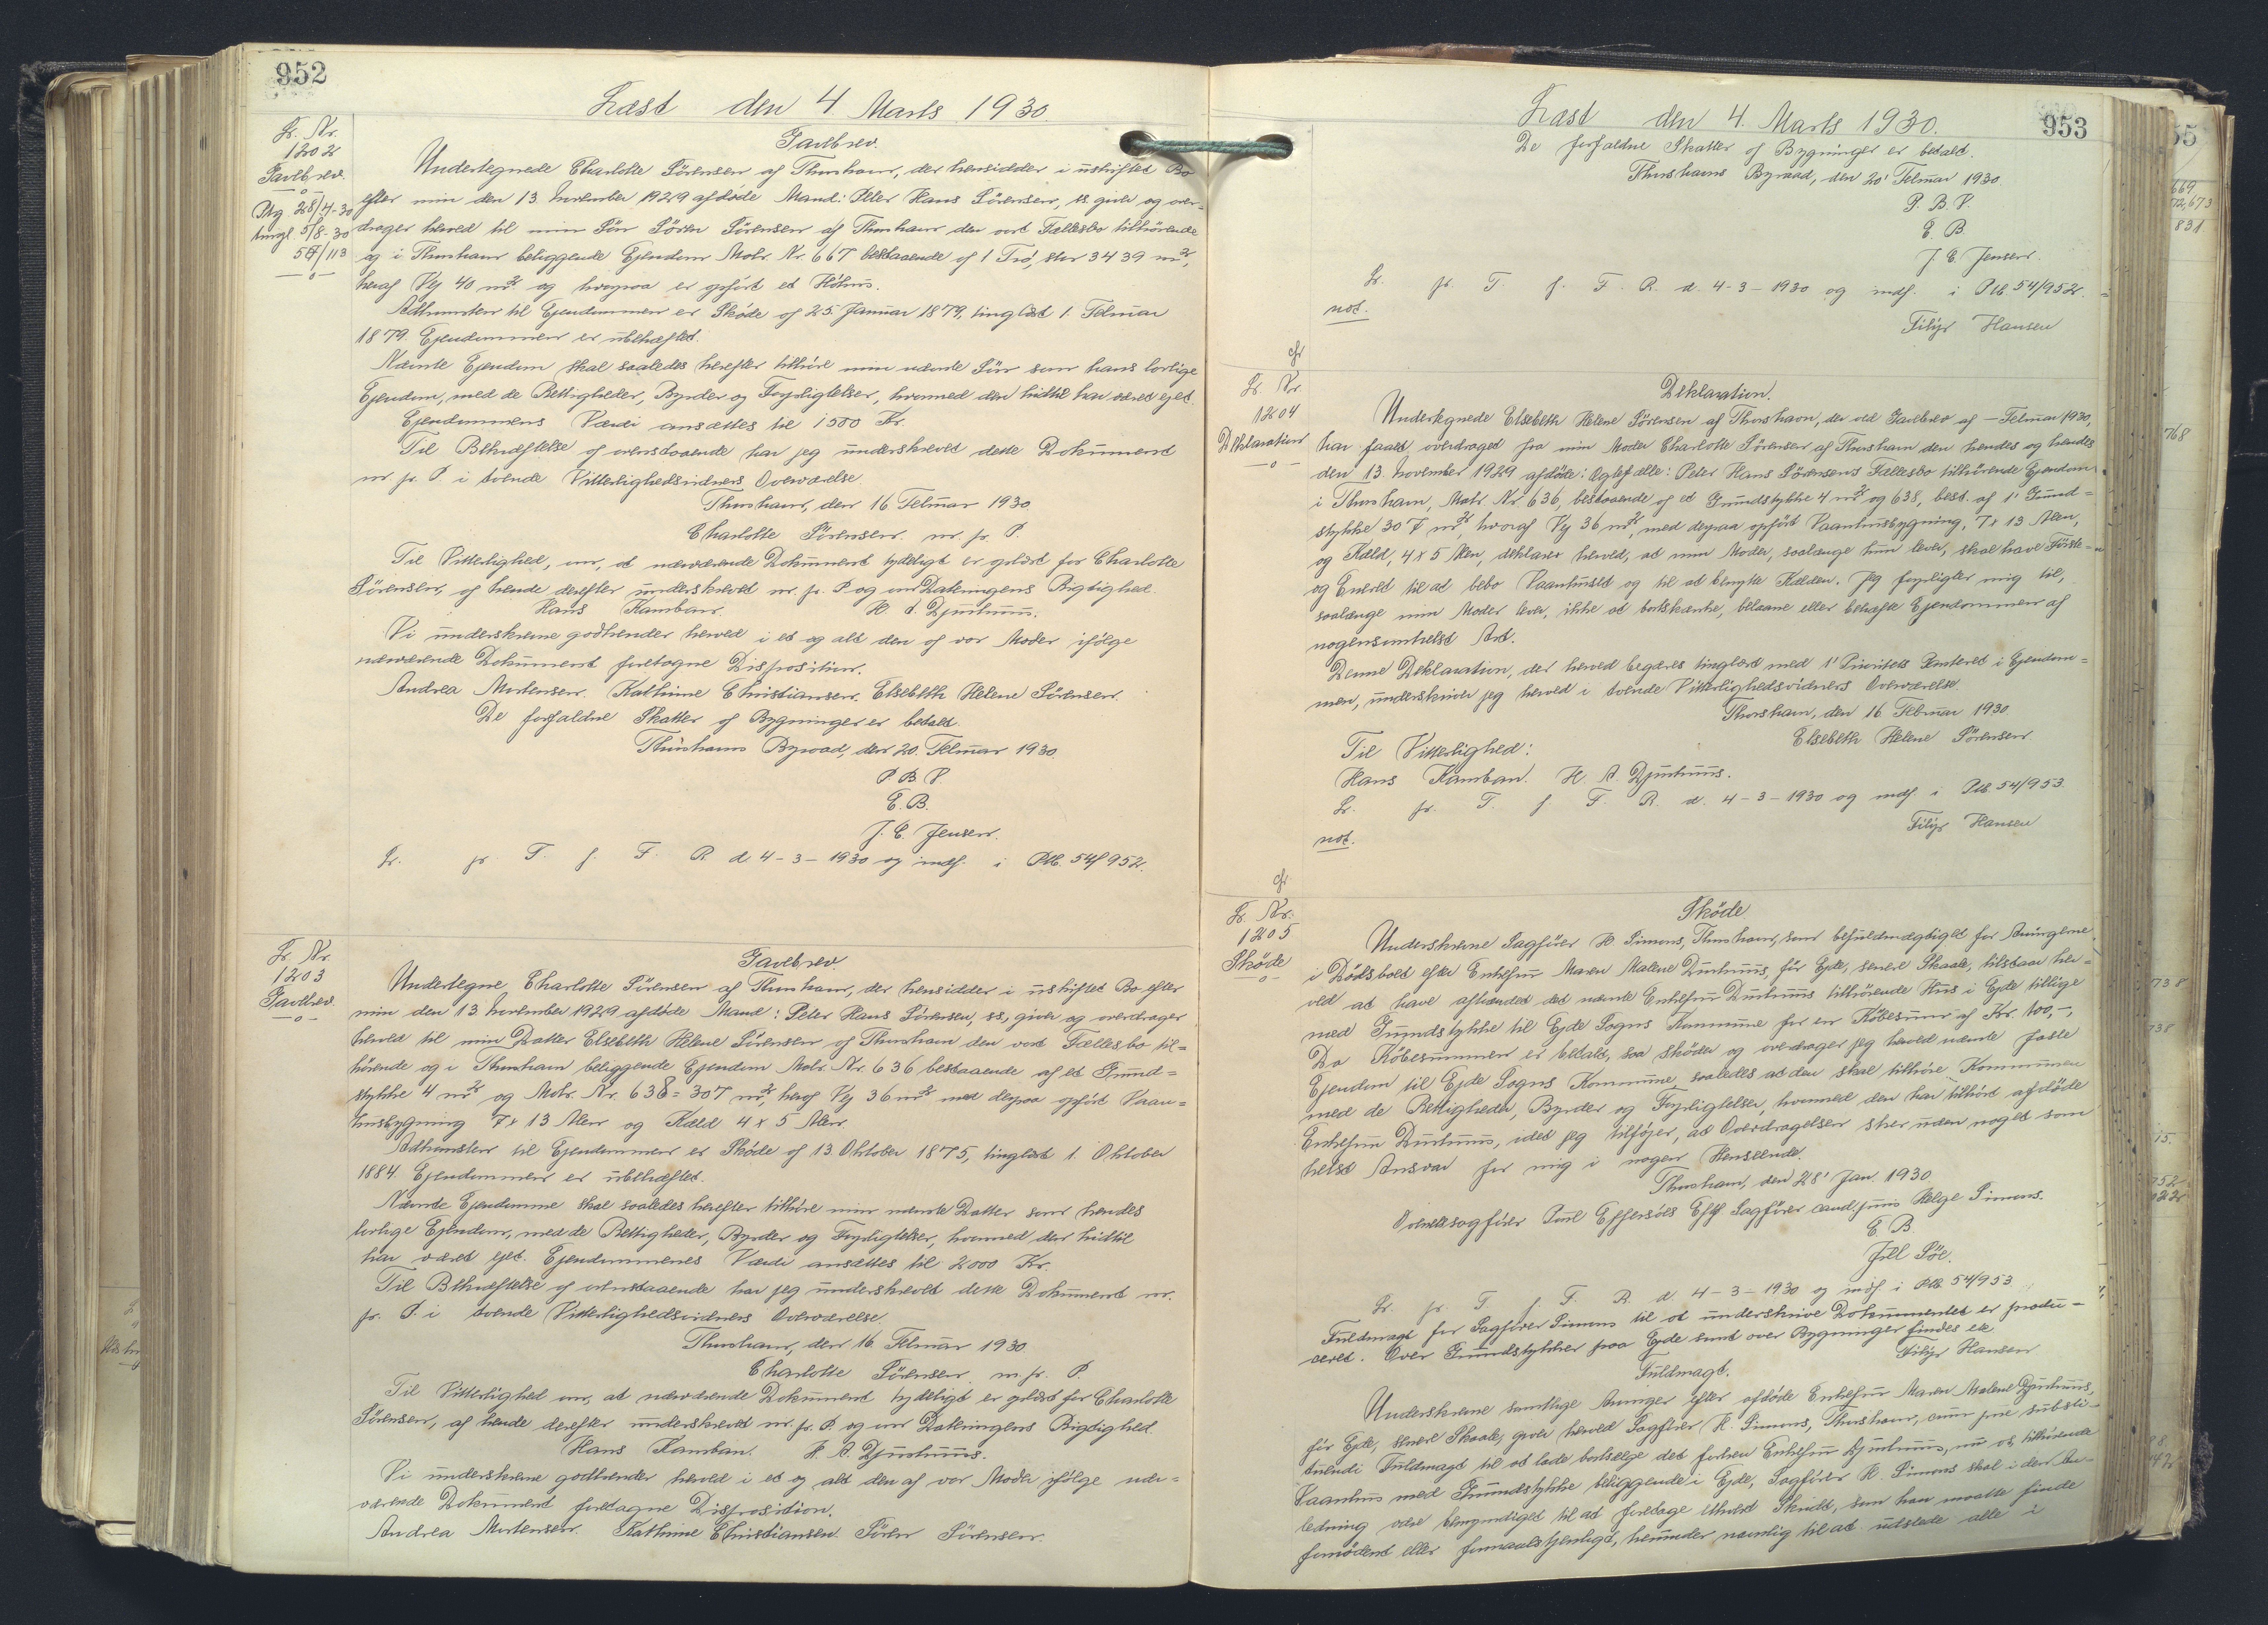 952
Læst den 4. Marts 1930.
L. Nr.
1202
Gavebrev.
Ptg. 28/4-30
tingl. 5/8-30
56/113
Gavebrev.
Undertegnede Charlotte Sörensen af Thorshavn, der hensidder i uskiftet Bo
efter min den 13. November 1929 afdöde Mand: Peter Hans Sörensen, ss. giver og over-
drager herved til min Sön Sören Sörensen af Thorshavn den vort Fællesbo tilhörende
og i Thorshavn beliggende Ejendom Matr. Nr. 667 bestaaende af 1 Trö, stor 3439 m²,
heraf Vej 40 m² og hvorpaa er opfört et Höhus.
Adkomsten til Ejendommen er Sköde af 25. Januar 1879, tinglæst 1. Februar
1879. Ejendommen er ubehæftet.
Nævnte Ejendom skal saaledes herefter tilhöre min nævnte Sön som hans lovlige
Ejendom, med de Rettigheder, Byrder og Forpligtelser, hvormed den hidtil har været ejet.
Ejendommens Værdi ansættes til 1500 Kr.
Til Bekræftelse af ovenstaaende har jeg underskrevet dette Dokument
m. fr. P. i tvende Vitterlighedsvidners Overværelse.
Thorshavn, den 16 Februar 1930.
Charlotte Sörensen. m. fr. P.
Til Vitterlighed, om, at nærværende Dokument tydeligt er oplæst for Charlotte
Sörensen, af hende derefter underskrevet m. fr. P. og om Dateringens Rigtighed.
Hans Kamban. H. A. Djurhuus.
Vi underskrevne godkender herved i et og alt den af vor Moder ifölge
nærværende Dokument foretagne Disposition.
Andrea Mortensen. Kathrine Christiansen. Elsebeth Helene Sörensen.
De forfaldne Skatter af Bygninger er betalt.
Thorshavns Byraad, den 20. Februar 1930.
P. B. V.
E. B.
J. C. Jensen.
L. fr. T. f. F. R. d. 4-3-1930 og indf. i Ptb. 54/952.
L. Nr.
1203
Gavebrev.
Gavebrev.
Undertegne Charlotte Sörensen af Thorshavn, der hensidder i uskiftet Bo efter
min den 13. November 1929 afdöde Mand: Peter Hans Sörensen, ss, giver og overdrager
herved til min Datter Elsebeth Helene Sörensen af Thorshavn den vort Fællesbo til=
hörende og i Thorshavn beliggende Ejendom Matr. Nr. 636 bestaaende af et Grund=
stykke 4 m² og Matr. Nr. 638 = 307 m², heraf Vej 36 m² med derpaa opfört Vaan=
husbygning 7 x 13 Alen og Kæld 4 x 5 Alen.
Adkomsten til Ejendommen er Sköde af 13. Oktober 1875, tinglæst 1. Oktober
1884. Ejendommen er ubehæftet.
Nævnte Ejendomme skal saaledes herefter tilhöre min nævnte Datter som hendes
lovlige Ejendom, med de Rettigheder, Byrder og Forpligtelser, hvormed den hidtil
har været ejet. Ejendommenes Værdi ansættes til 2000 Kr.
Til Bekræftelse af ovenstaaende har jeg underskrevet dette Dokument m.
fr. P. i tvende Vitterlighedsvidners Overværelse.
Thorshavn, den 16. Februar 1930.
Charlotte Sörensen. m. fr. P.
Til Vitterlighed om, at nærværende Dokument tydeligt er oplæst for Charlotte
Sörensen, af hende derefter underskrevet m. fr. P. og om Dateringens Rigtighed.
Hans Kamban. H. A. Djurhuus.
Vi underskrevne godkender herved i et og alt den af vor Moder ifölge nær=
værende Dokument foretagne Disposition.
Andrea Mortensen. Kathrine Christiansen. Sören Sörensen.
953
Læst den 4. Marts 1930.
De forfaldne Skatter af Bygninger er betalt.
Thorshavns Byraad, den 20' Februar 1930.
P. B. V.
E. B.
J. C. Jensen.
L. fr. T. f. F. R. d. 4-3-1930 og indf. i Ptb. 54/952.
not.
Filip Hansen
cfr
L. Nr.
1204
Deklaration
Deklaration.
Undertegnede Elsebeth Helene Sörensen af Thorshavn, der ved Gavebrev af — Februar 1930,
har faaet overdraget fra min Moder Charlotte Sörensen af Thorshavn den hendes og hendes
den 13. November 1929 afdöde: Ægtefælle: Peter Hans Sörensens Fællesbo tilhörende Ejendom
i Thorshavn, Matr. Nr. 636, bestaaende af et Grundstykke 4 m² og 638, best. af 1' Grund=
stykke 307 m², hvoraf Vej 36 m², med derpaa opfört Vaanhusbygning, 7 x 13 Alen,
og Kæld, 4 x 5 Alen, deklarer herved, at min Moder, saalænge hun lever, skal have Förste-
og Eneret til at bebo Vaanhuset og til at benytte Kælden. Jeg forpligter mig til,
saalænge min Moder lever, ikke at bortskænke, belaane eller behæfte Ejendommen af
nogensomhelst Art.
Denne Deklaration, der herved begæres tinglæst med 1' Prioritets Panteret i Ejendom=
men, underskriver jeg herved i tvende Vitterlighedsvidners Overværelse.
Thorshavn, den 16. Februar 1930.
Elsebeth Helene Sörensen.
Til Vitterlighed:
Hans Kamban. H. A. Djurhuus.
L. fr. T. f. F. R. d. 4-3-1930 og indf. i Ptb. 54/953.
not.
Filip Hansen
cfr
L. Nr.
1205
Sköde
Sköde
Underskrevne Sagförer H. Simons, Thorshavn, som befuldmægtiget for Arvingerne
i Dödsboet efter Enkefru Maren Malene Djurhuus, för Ejde, senere Skaale, tilstaar her=
ved at have afhændet det nævnte Enkefru Djurhuus tilhörende Hus i Ejde tillige
med Grundstykke til Ejde Sogns Kommune for en Köbesum af Kr. 100,-,
Da Köbesummen er betalt, saa sköder og overdrager jeg herved nævnte faste
Ejendom til Ejde Sogns Kommune, saaledes at den skal tilhöre Kommunen
med de Rettigheder, Byrder og Forpligtelser, hvormed den har tilhört afdöde
Enkefru Djurhuus, idet jeg tilföjer, at Overdragelsen sker uden noget som
helst Ansvar for mig i nogen Henseende.
Thorshavn, den 28' Jan. 1930.
Overretssagförer Poul Effersöes Eftf. Sagförer cand juris Helge Simons.
E. B.
Jell Söe.
L. fr. T. f. F. R. d. 4-3-1930 og indf. i Ptb. 54/953
Fuldmagt for Sagförer Simons til at underskrive Dokumentet er produ=
ceret. Over Grundstykker paa Ejde samt over Bygninger findes ek
Filip Hansen
Fuldmagt.
Underskrevne samtlige Arvinger efter afdöde Enkefru Maren Malene Djurhuus,
för Ejde, senere Skaale, giver herved Sagförer H. Simons, Thorshavn, cum jure substi-
tuendi Fuldmagt til at lade bortsælge det forhen Enkefru Djurhuus, nu os tilhörende
Vaanhus med Grundstykke beliggende i Ejde, Sagförer H. Simons skal i den An-
ledning være bemyndiget til at foretage ethvert Skridt, som han maatte finde
fornödent eller formaalstjenligt, herunder navnlig til at udstede alle i